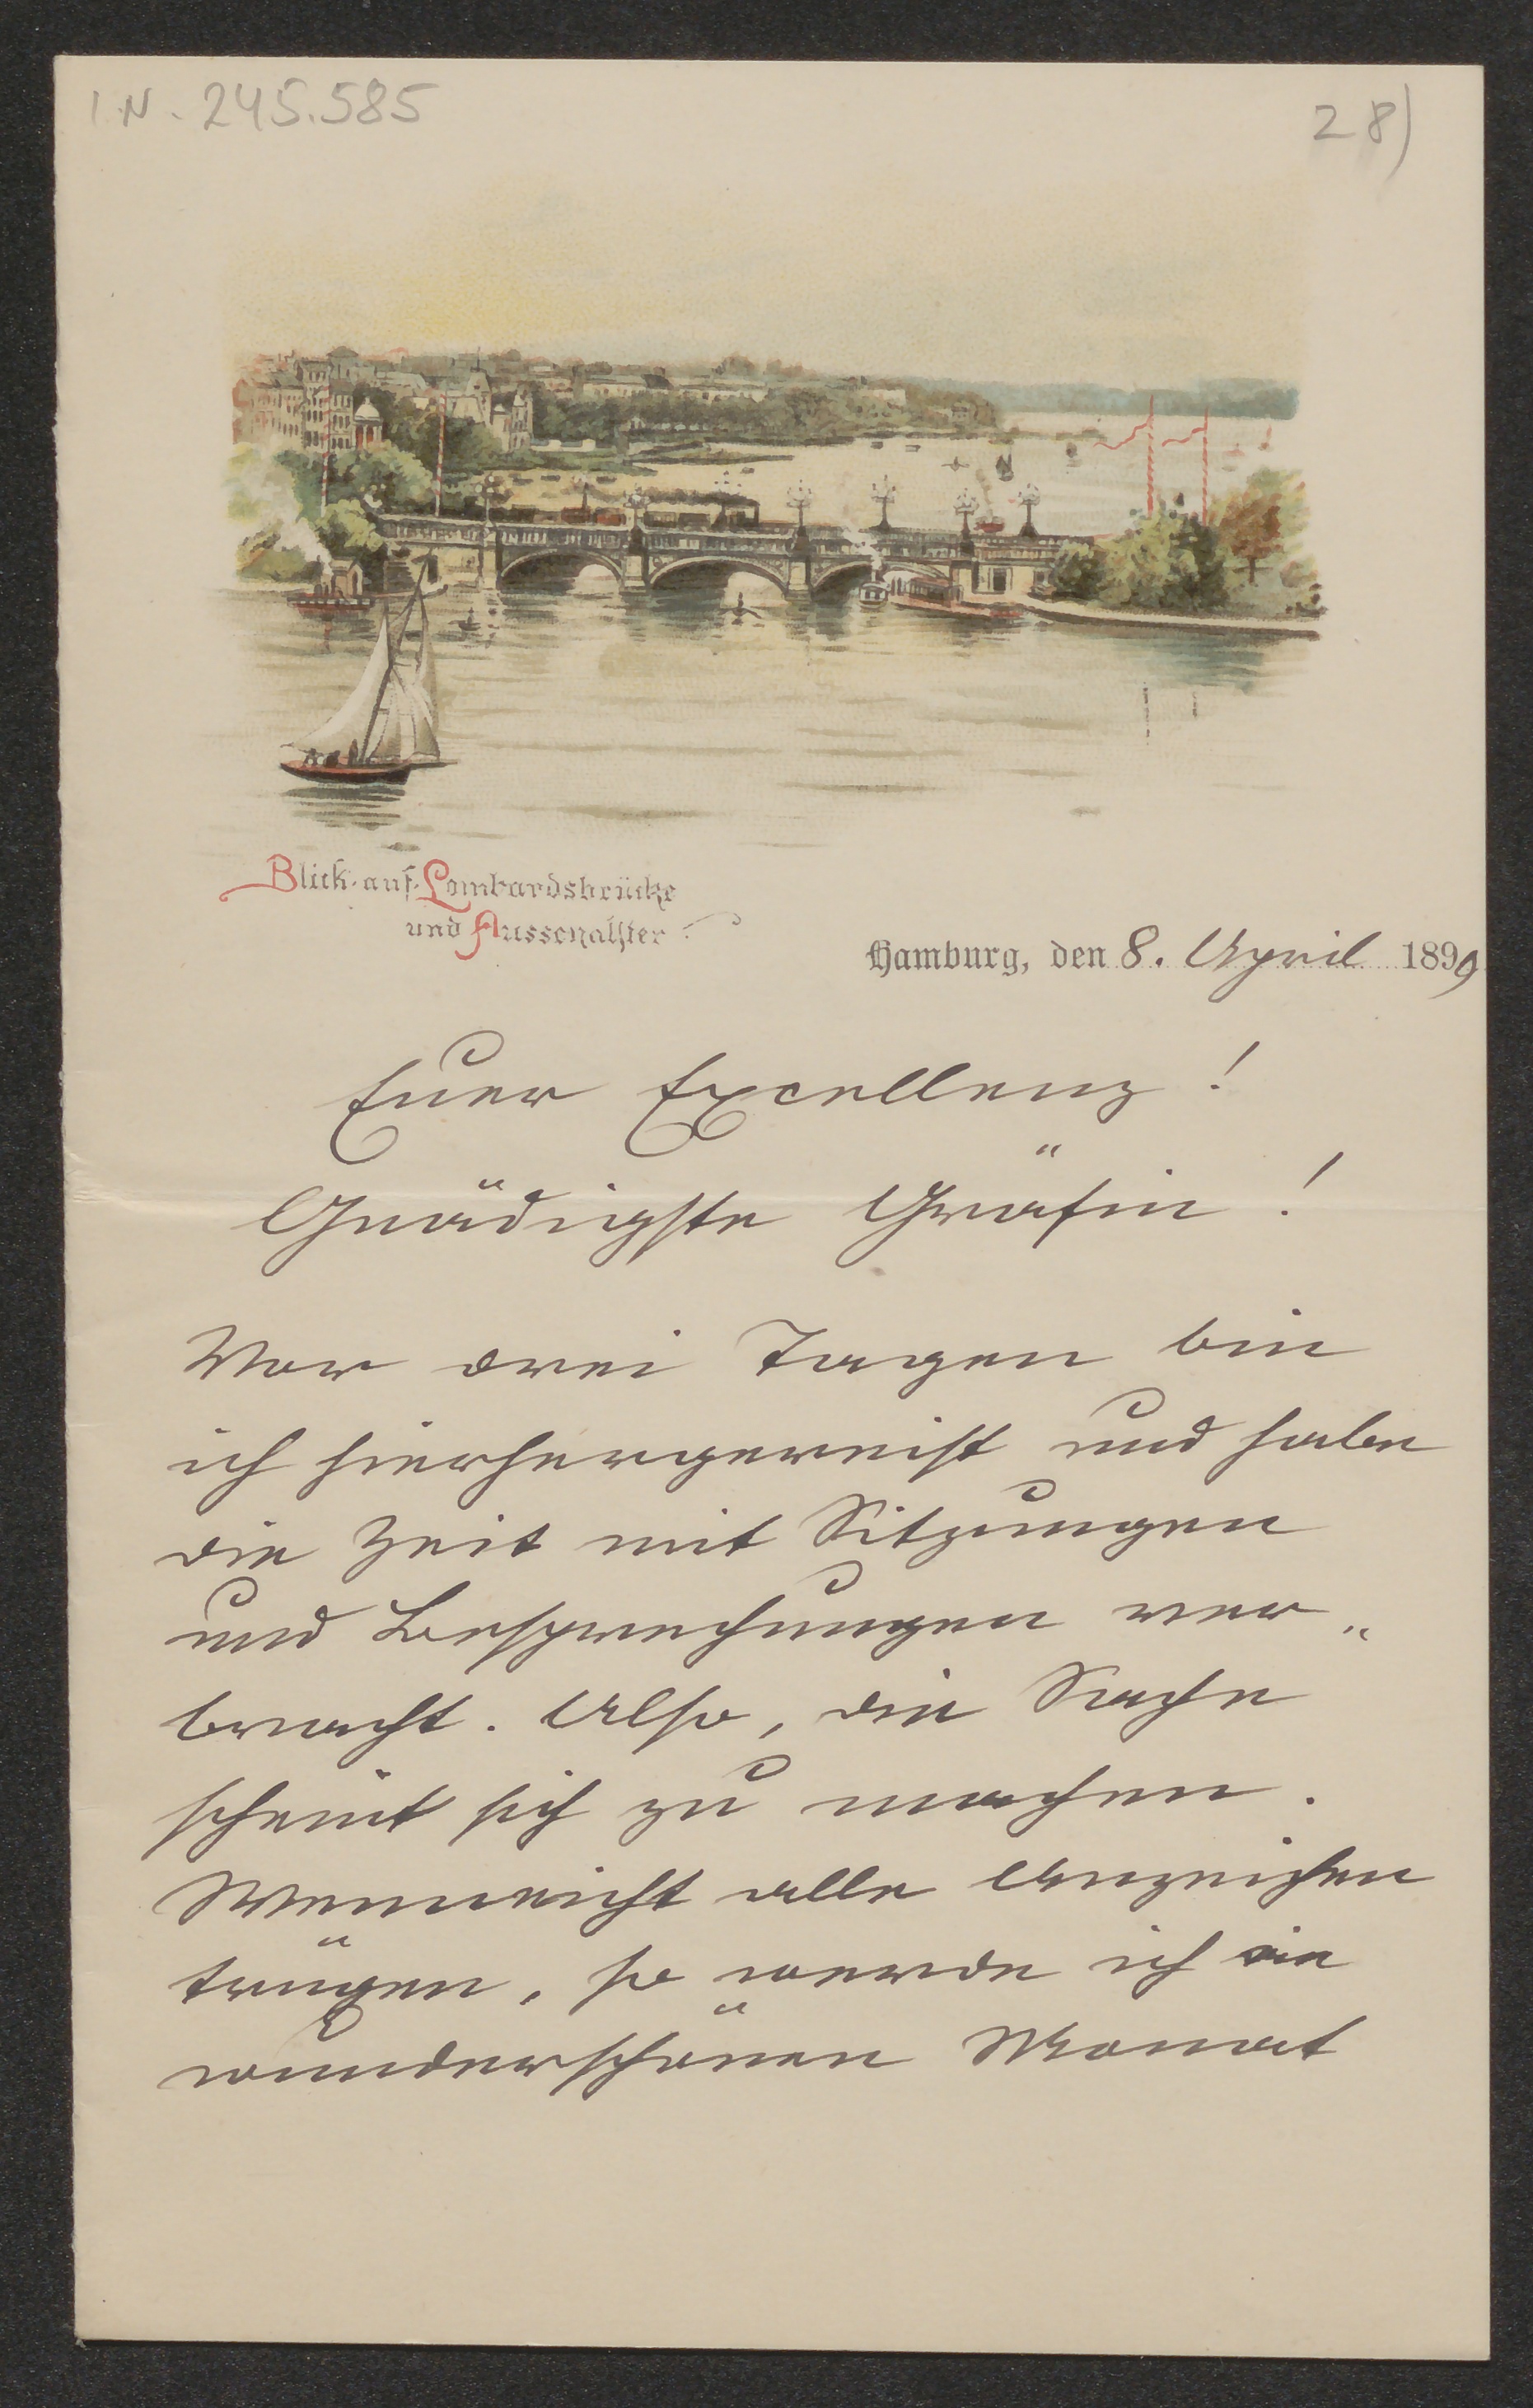 I.N. 245.585
28)
Blick auf Lombardsbrücke
und Aussenalster
Hamburg, den 8. April 1899
Euer Excellenz!
Gnädigste Gräfin!
Vor drei Tagen bin
ich hierhergereist und habe
die Zeit mit Sitzungen
und Besprechungen ver„
bracht. Also, die Sache
scheint sich zu machen.
Wennnicht alle Anzeichen
trügen, so werde ich die
wunderschönen Monat